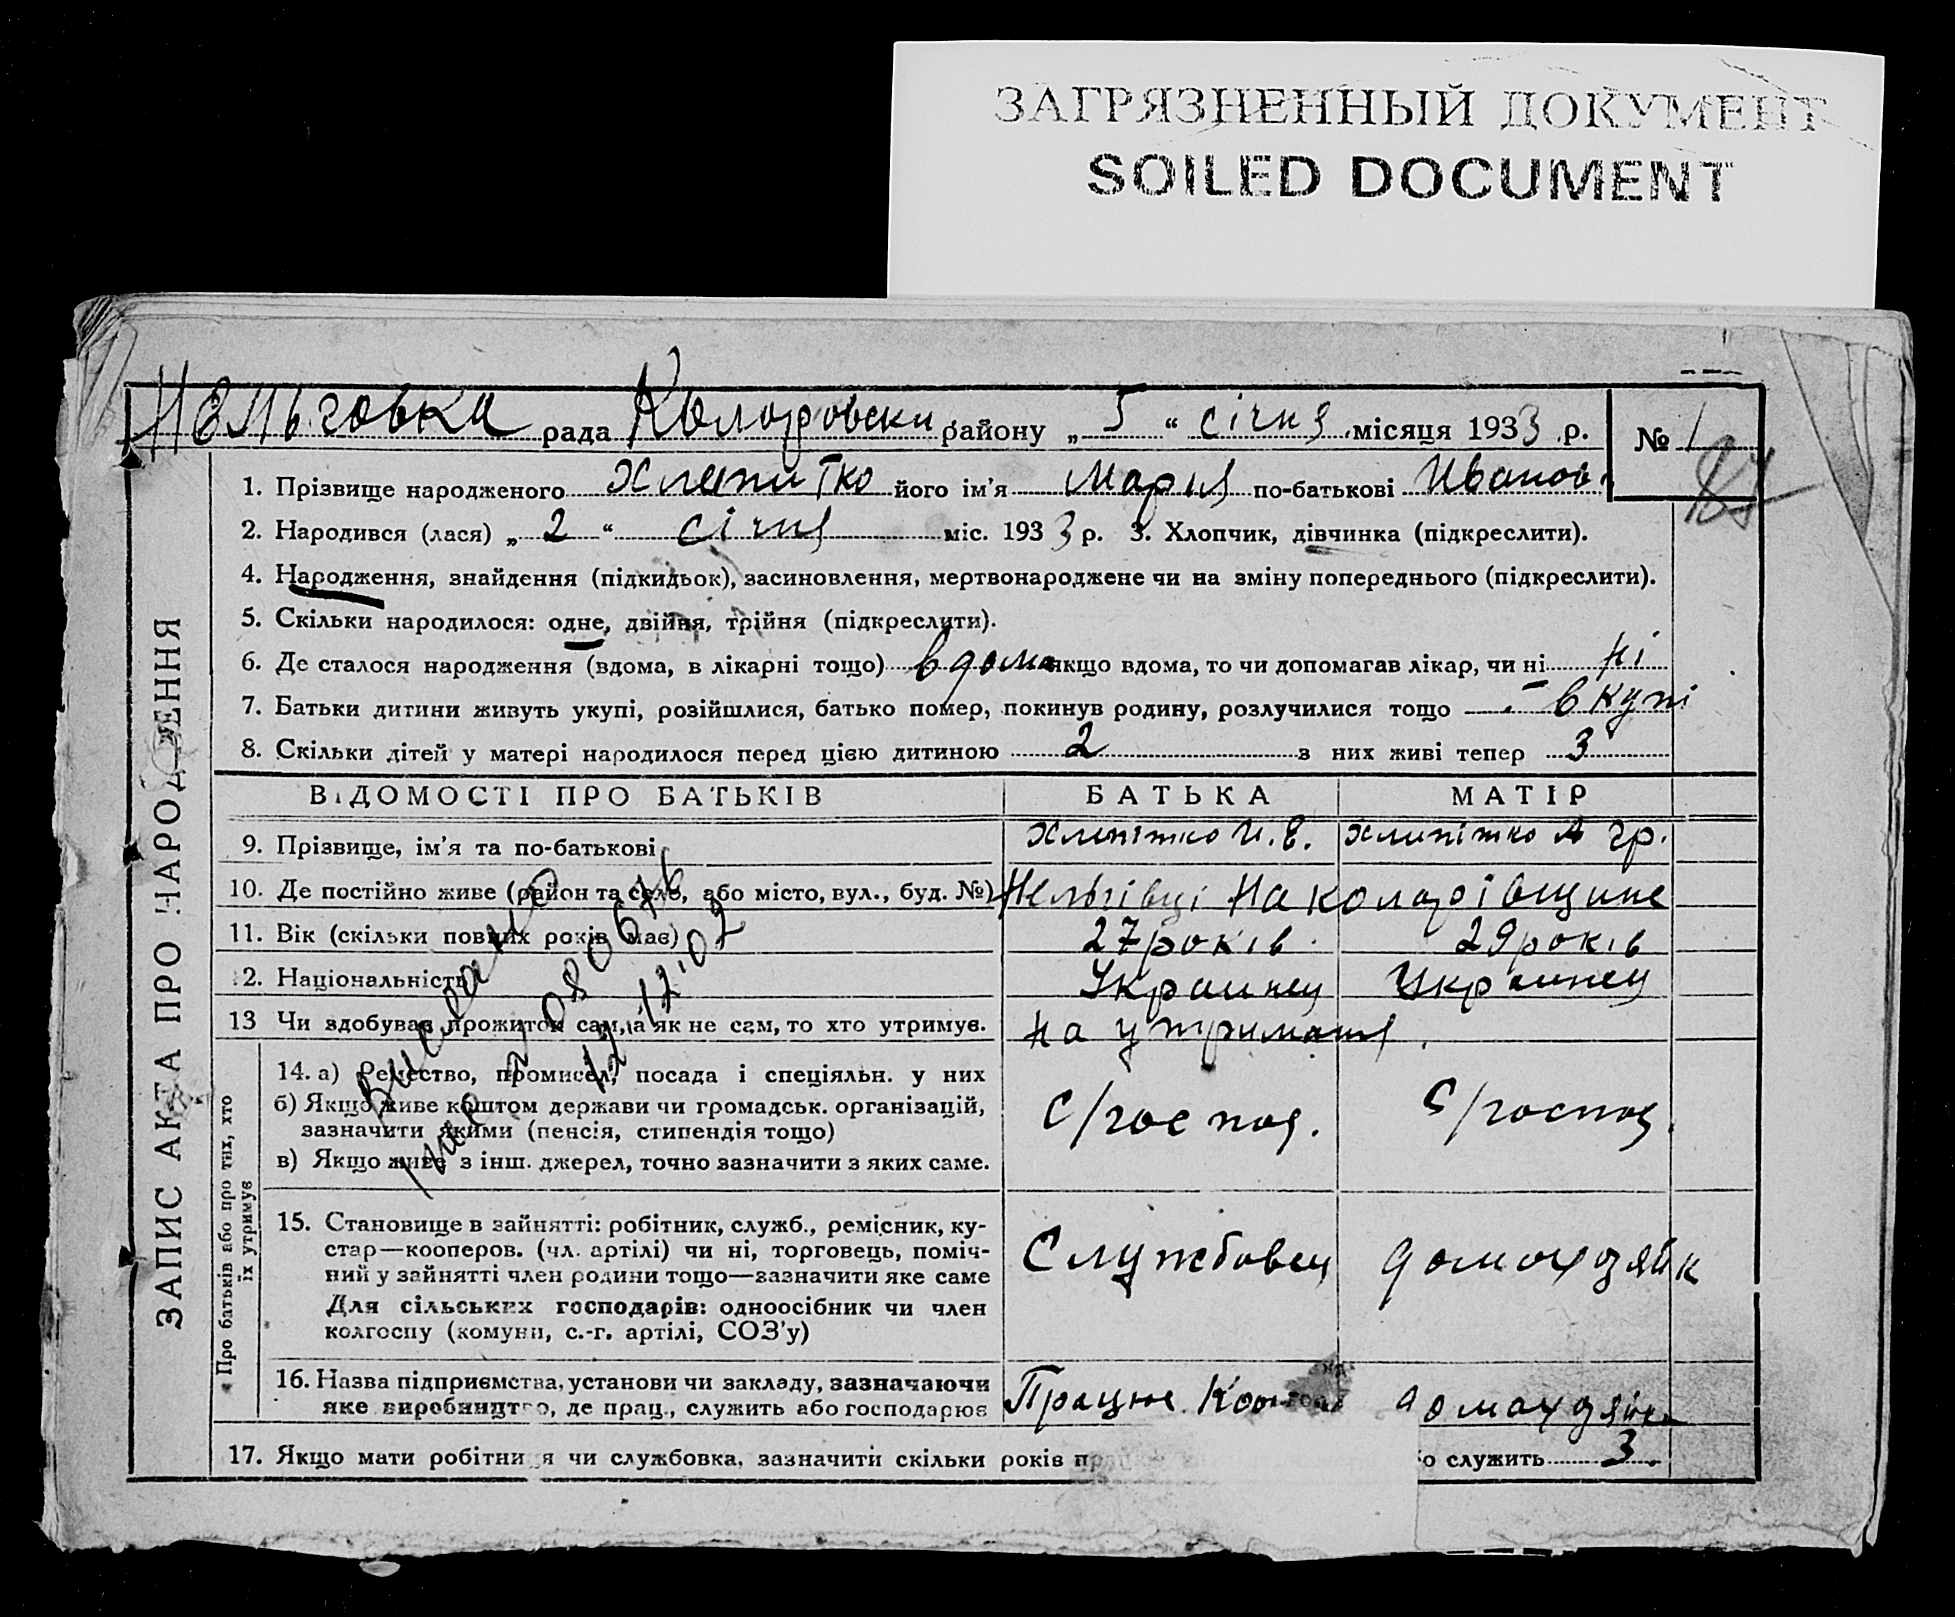 ЗАГРЯЗНЕННЫЙ ДОКУМЕНТ
SOILED DOCUMENT
Нельговка рада Коларовски району „ 5 “ січня місяця 1933 р. № 1
87
1. Прізвище народженого Хлепитко його ім'я Мария по-батькові Иванов
2. Народився (лася) „ 2 “ січня міс. 1933 р. 3. Хлопчик, дівчинка (підкреслити).
4. Народження, знайдення (підкидьок), засиновлення, мертвонароджене чи на зміну попереднього (підкреслити).
5. Скільки народилося: одне, двійня, трійня (підкреслити).
6. Де сталося народження (вдома, в лікарні тощо) вдома якщо вдома, то чи допомагав лікар, чи ні ні
7. Батьки дитини живуть укупі, розійшлися, батько помер, покинув родину, розлучилися тощо вкупі
8. Скільки дітей у матері народилося перед цією дитиною 2 з них живі тепер 3
ЗАПИС АКТА ПРО НАРОДЖЕННЯ
ВІДОМОСТІ ПРО БАТЬКІВ БАТЬКА МАТІР
9. Прізвище, ім'я та по-батькові Хлипітко И. Е. Хлипітко А гр.
10. Де постійно живе (район та село, або місто, вул., буд. №) Нельгівці на коларівщине
11. Вік (скільки повних років має) 27 років 29 років
12. Національність Украинец Украинец
13 Чи здобував прожиток сам, а як не сам, то хто утримує. на утриманя
Про батьків або про тих, хто
їх утримує
14. а) Ремество, промисел, посада і спеціяльн. у них с/господ. с/господ.
б) Якщо живе коштом держави чи громадськ. організацій,
зазначити якими (пенсія, стипендія тощо)
в) Якщо живе з інш. джерел, точно зазначити з яких саме.
15. Становище в зайнятті: робітник, служб., ремісник, ку-
стар—кооперов. (чл. артілі) чи ні, торговець, поміч-
ний у зайнятті член родини тощо—зазначити яке саме
Службовец домохозяйк
Для сільських господарів: одноосібник чи член
колгоспу (комуни, с.-г. артілі, СОЗ'у)
16. Назва підприємства, установи чи закладу, зазначаючи
яке виробництво, де прац., служить або господарює Працює домахозяйка
17. Якщо мати робітниця чи службовка, зазначити скільки років о служить 3.
Видано
12.12.02